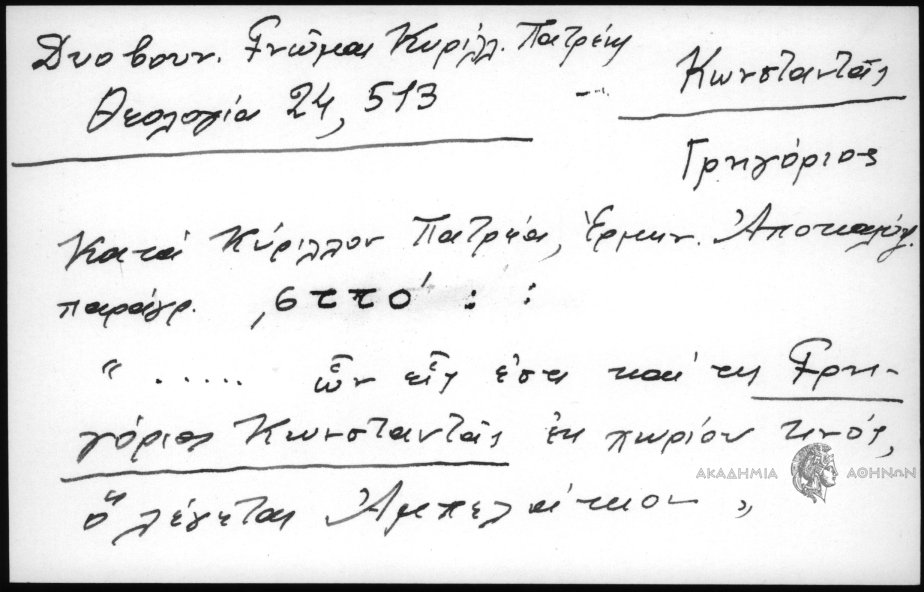 Δυοβουν. Γνῶμαι Κυρίλλ. Πατρέως
Θεολογία 24, 513
Κωνσταντᾶς
Γρηγόριος
Κατά Κύριλλον Πατρέα, Ἑρμην. Ἀποκαλύψ.
παράγρ. ͵ϛτπο΄ : :
" ..... ὧν εἷς ἐστι καί τις Γρη-
γόριος Κωνσταντᾶς ἐκ χωρίου τινός,
ὅ λέγεται Ἀμπελάκιον "
ΑΚΑΔΗΜΙΑ ΑΘΗΝΩΝ